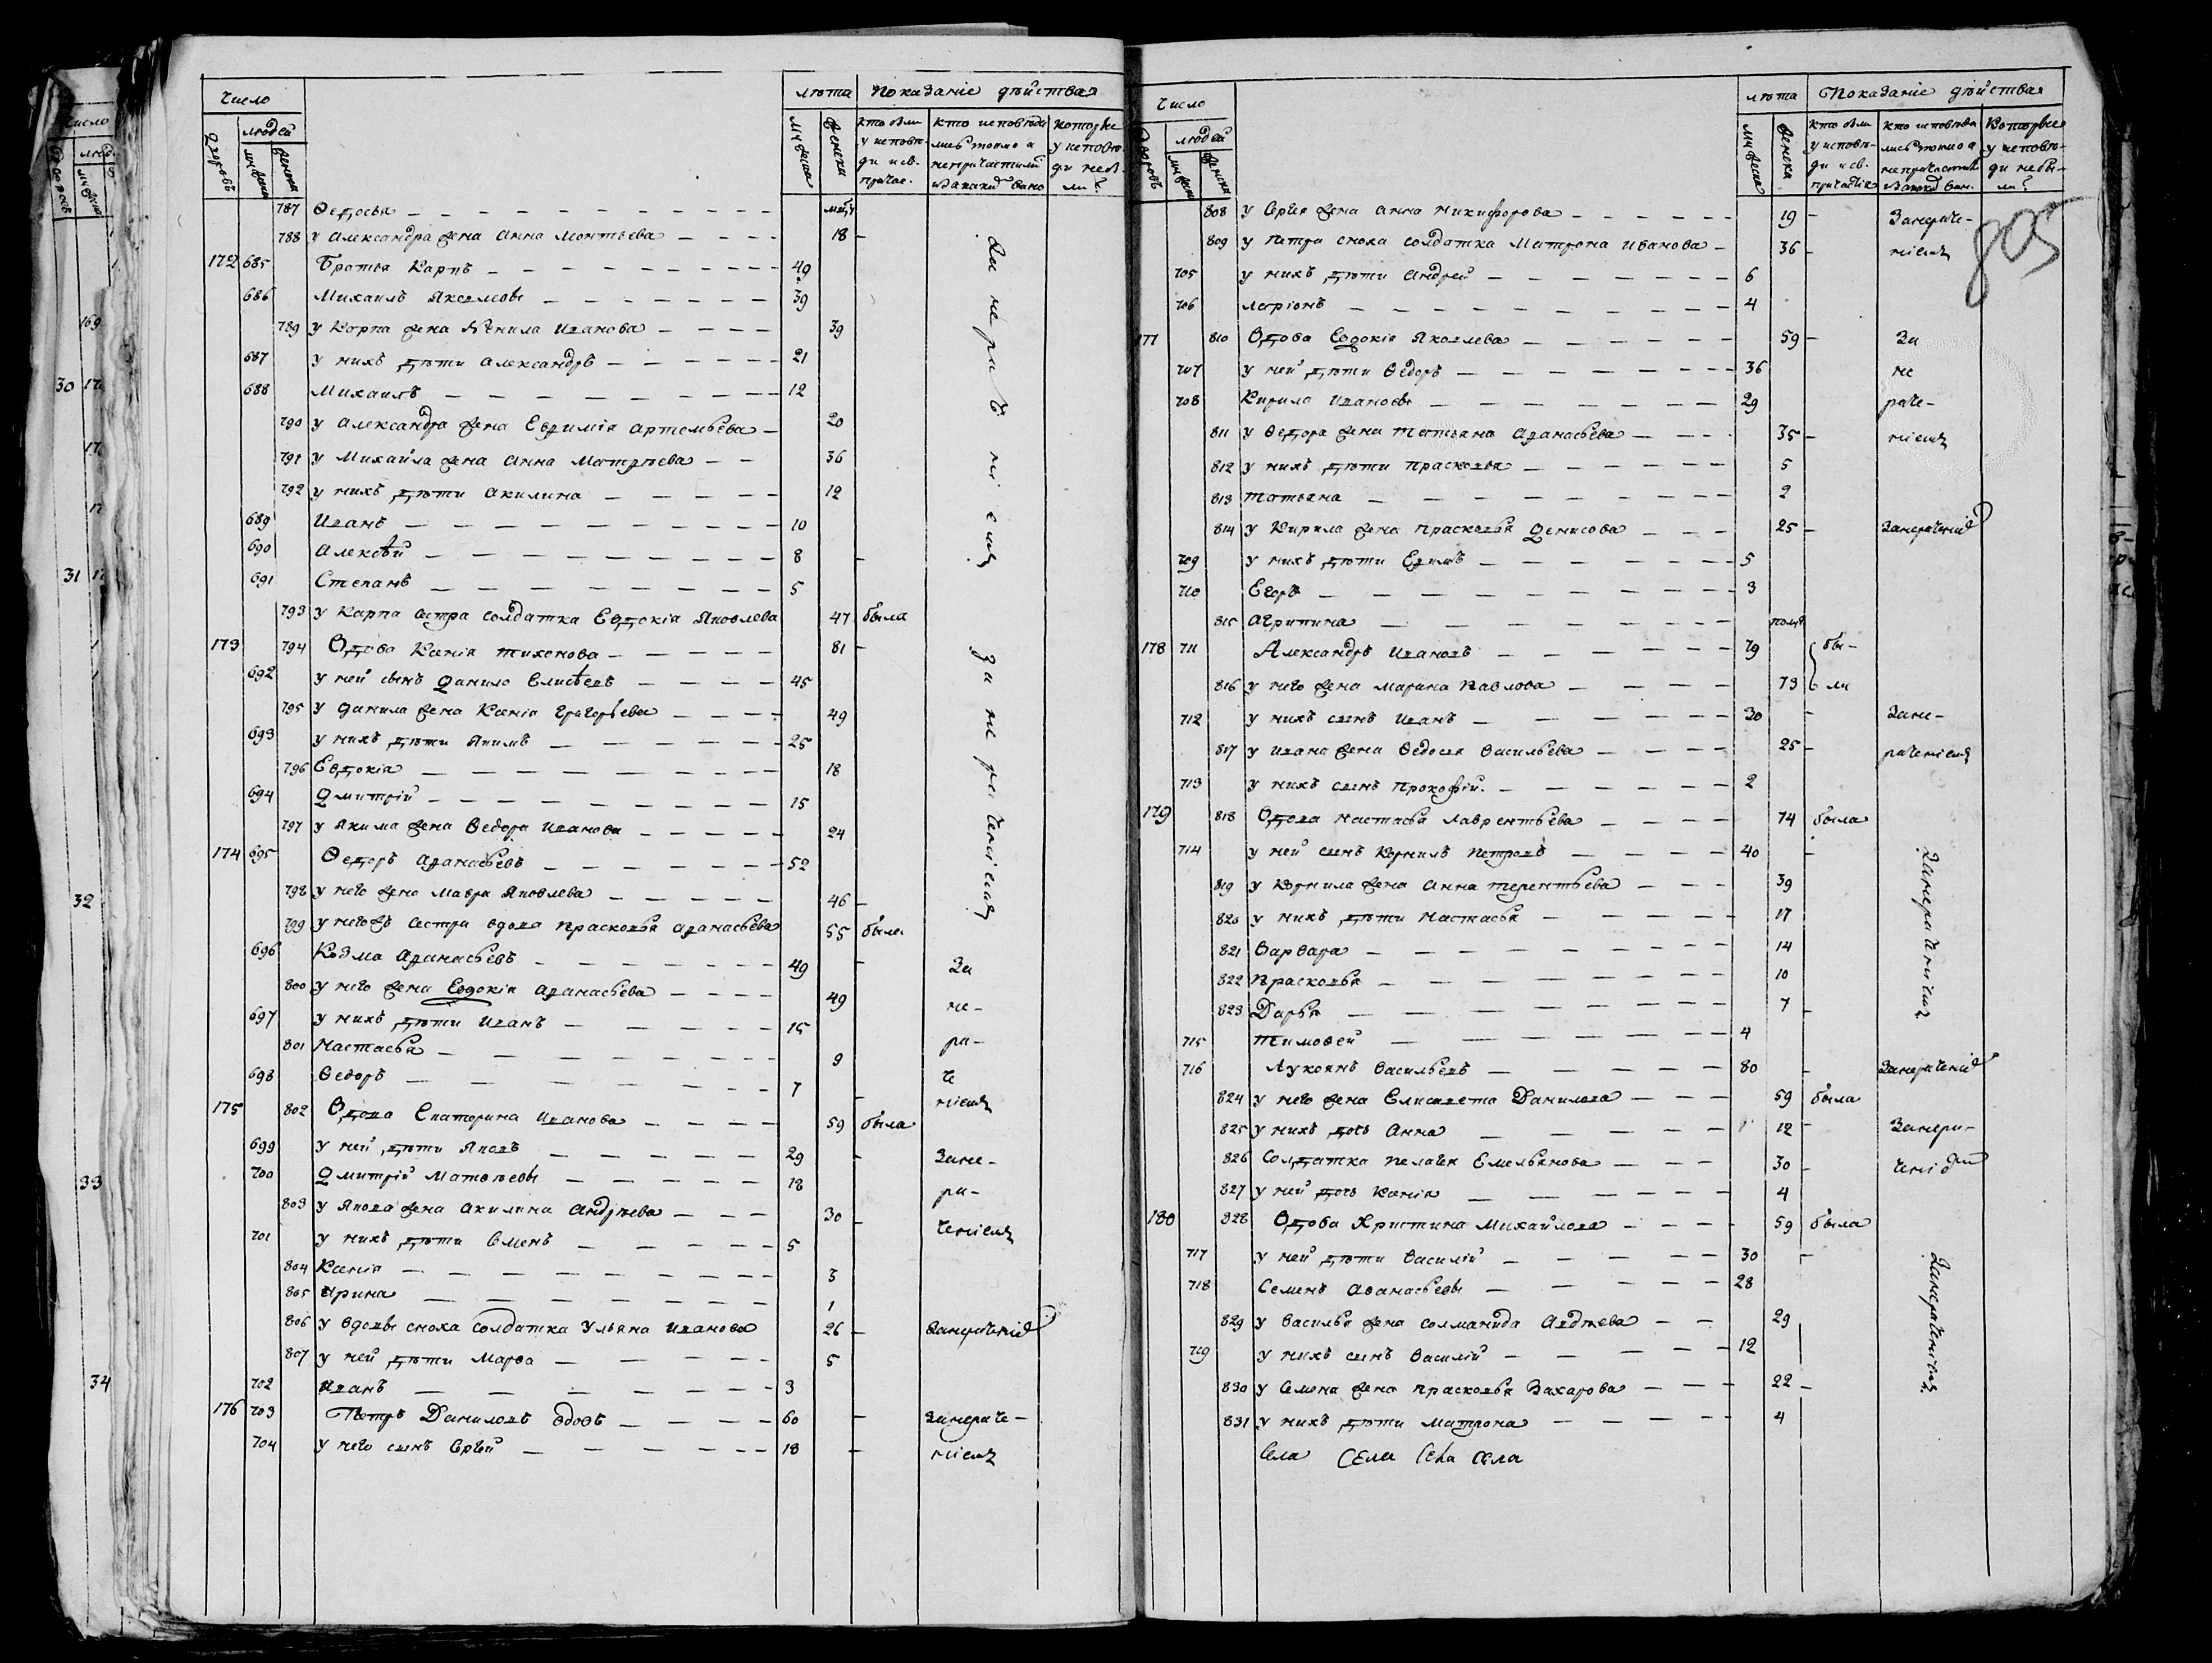 Число
людей
дворовъ
мужеска
женска
лѣта
Показанiе дѣйства
мужеска
женска
кто были у исповѣди и св. причас.
кто исповѣдались токмо а не причастили и за какою виною
которые у исповѣди не были
787 Ѳедосья
788 у Александра жена Анна Монтѣева 18 –
172 685 Братья Карпъ 49
686 Михаилъ Яковлевы 39
789 у Карпа жена Ненила Иванова 39
687 у нихъ дѣти Александръ 21
688 Михаилъ 12
790 у Александра жена Евфимiя Артемьева 20
791 у Михаила жена Анна Матвѣева 36
792 у нихъ дѣти Акилина 12
689 Иванъ 10
690 Алексѣй 8 –
691 Степанъ 5
За нераченiемъ
793 у Карпа сестра солдатка Евдокiя Яковлева 47 была
173 794 Вдова Ксенiя Тихонова 81 –
692 у ней сынъ Данило Елисѣевъ 45
795 у Данила жена Ксенiя Григорьева 49
693 у нихъ дѣти Якимъ 25
796 Евдокiа 18
694 Дмитрiй 15
797 у Якима жена Ѳедора Иванова 24
174 695 Ѳедоръ Афанасьевъ 52
798 у него жена Мавра Яковлева 46 –
За нераченiемъ
799 у негожъ сестра вдова Прасковья Афанасьева 55 была
696 Козма Афанасьевъ 49 – За
800 у него жена Евдокiя Афанасьева 49 не-
697 у нихъ дѣти Иванъ 15 ра-
801 Настасья 9 че
698 Ѳедоръ 7 – нiемъ
175 802 Вдова Екатерина Иванова 59 была
699 у ней дѣти Яковъ 29 – Зане-
700 Дмитрiй Матвѣевы 18 ра-
803 у Якова жена Акилина Андрѣева 30 – ченiемъ
701 у нихъ дѣти Семенъ 5
804 Ксенiя 3
805 Ирина 1
806 у вдовы сноха солдатка Ульяна Иванова 26 – Занераченiе
807 у ней дѣти Марѳа 5
702 Иванъ 3
176 703 Петръ Даниловъ вдовъ 60 – Занераче-
704 у него сынъ Сергей 18 – нiемъ
Число
людей
дворовъ
мужеска
женска
лѣта
Показанiе дѣйства
мужеска
женска
кто были у исповѣди и св. причастiя
кто исповѣдались токмо а не причастил и за какою вин.
которые у исповѣди не были
805
808 у Сергея жена Анна Никифорова 19 – Занераче-
809 у Петра сноха солдатка Матрона Иванова 36 – нiемъ
705 у нихъ дѣти Андрей 6
706 Ларiонъ 4
177 810 Вдова Евдокiя Яковлева 59 – За
707 у ней дѣти Ѳедоръ 36 не
708 Кирило Ивановы 29 раче-
811 у Ѳедора жена Татьяна Афанасьева 35 – нiемъ
812 у нихъ дѣти Прасковья 5
813 Татьяна 2
814 у Кирила жена Прасковья Денисова 25 – Занераченiе
709 у нихъ дѣти Ефимъ 5
710 Егоръ 3
815 Агрипина полг
178 711 Александръ Ивановъ 79 бы-
816 у него жена Марина Павлова 73 ли
712 у нихъ сынъ Иванъ 30 – Зане-
817 у Ивана жена Ѳедосья Васильева 25 – раченiемъ
713 у нихъ сынъ Прокофiй 2
179 818 Вдова Настасья Лаврентьева 74 была
714 у ней сынъ Корнилъ Петровъ 40 –
819 у Корнила жена Анна Терентьева 39
820 у нихъ дѣти Настасья 17
821 Варвара 14
822 Прасковья 10
823 Дарья 7 –
715 Тимоѳей 4
Занераченiемъ
716 Лукоянъ Васильевъ 80 – Занераченiе
824 у него жена Елисавета Данилова 59 была
825 у нихъ дочь Анна 12 – Занера-
826 Солдатка Пелагея Емельянова 30 – ченiем
827 у ней дочь Ксенiя 4
180 828 Вдова Христина Михайлова 59 была
717 у ней дѣти Василiй 30 –
718 Семенъ Аѳанасьевы 28
829 у Василья жена Соломанида Авдѣева 29
719 у нихъ сынъ Василiй 12
830 у Семена жена Прасковья Захарова 22 –
831 у нихъ дѣти Матрона 4
Занераченiемъ
Села Села Села Села